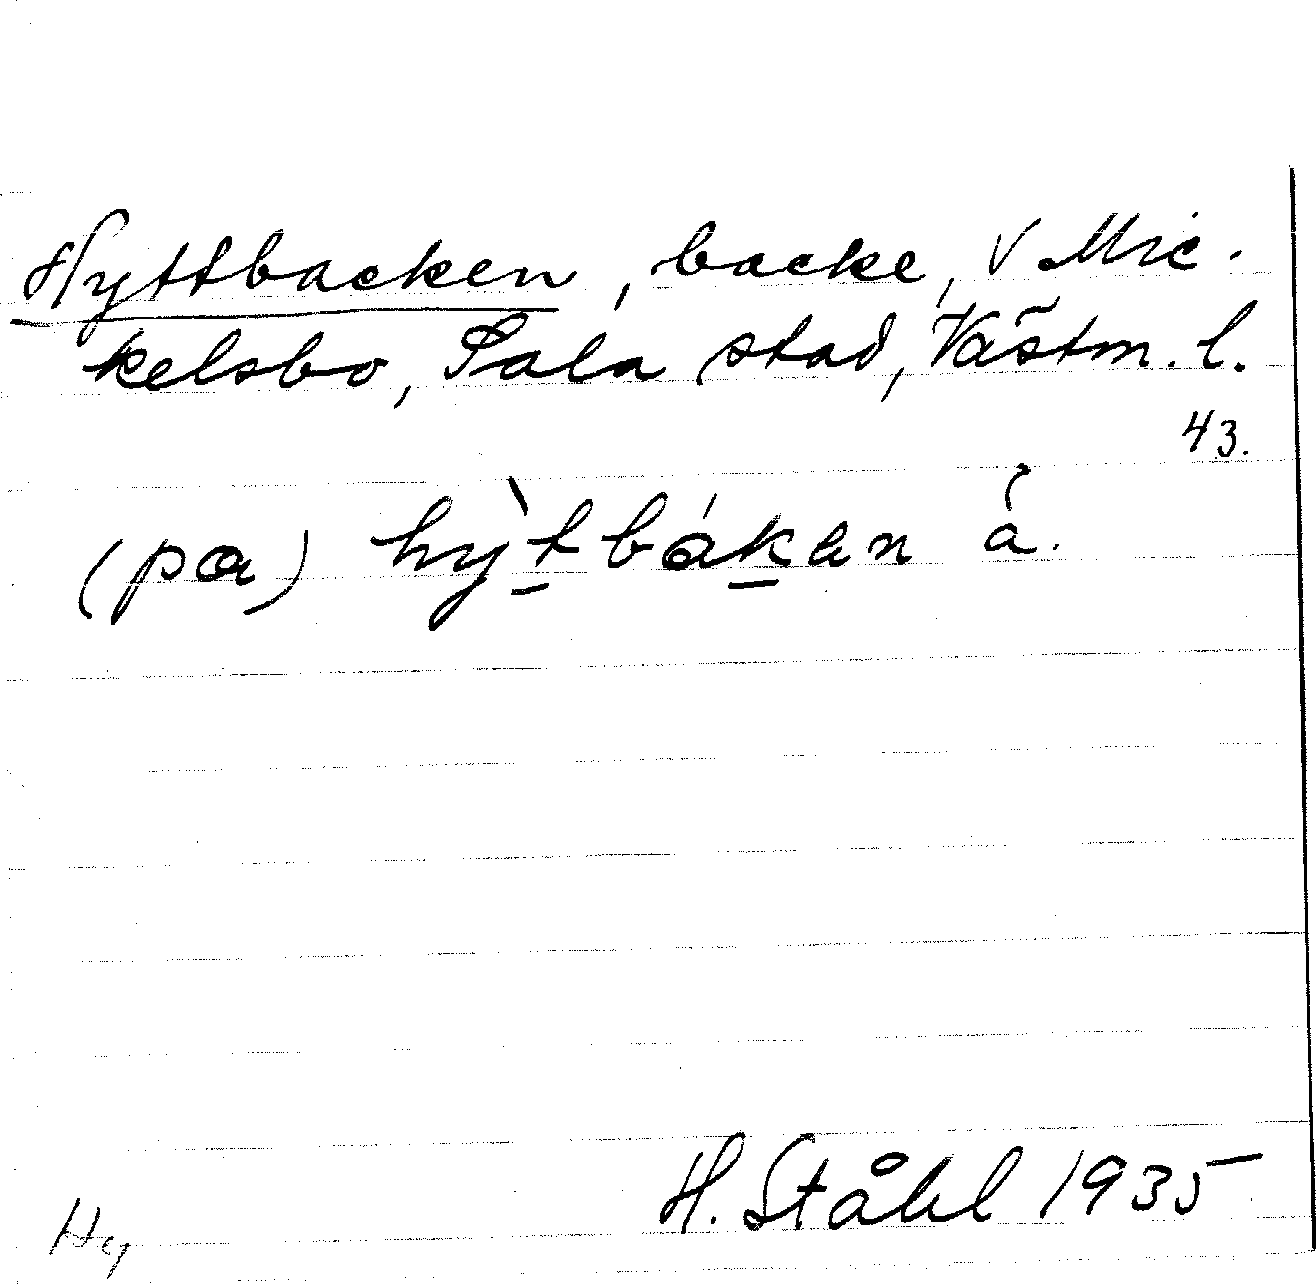 Hyttbacken, backe, V Mic-
kelsbo, Sala stad, Västm. l.
43.
(pa) hỳtbákan å.
H. Ståhl 1935
Hy